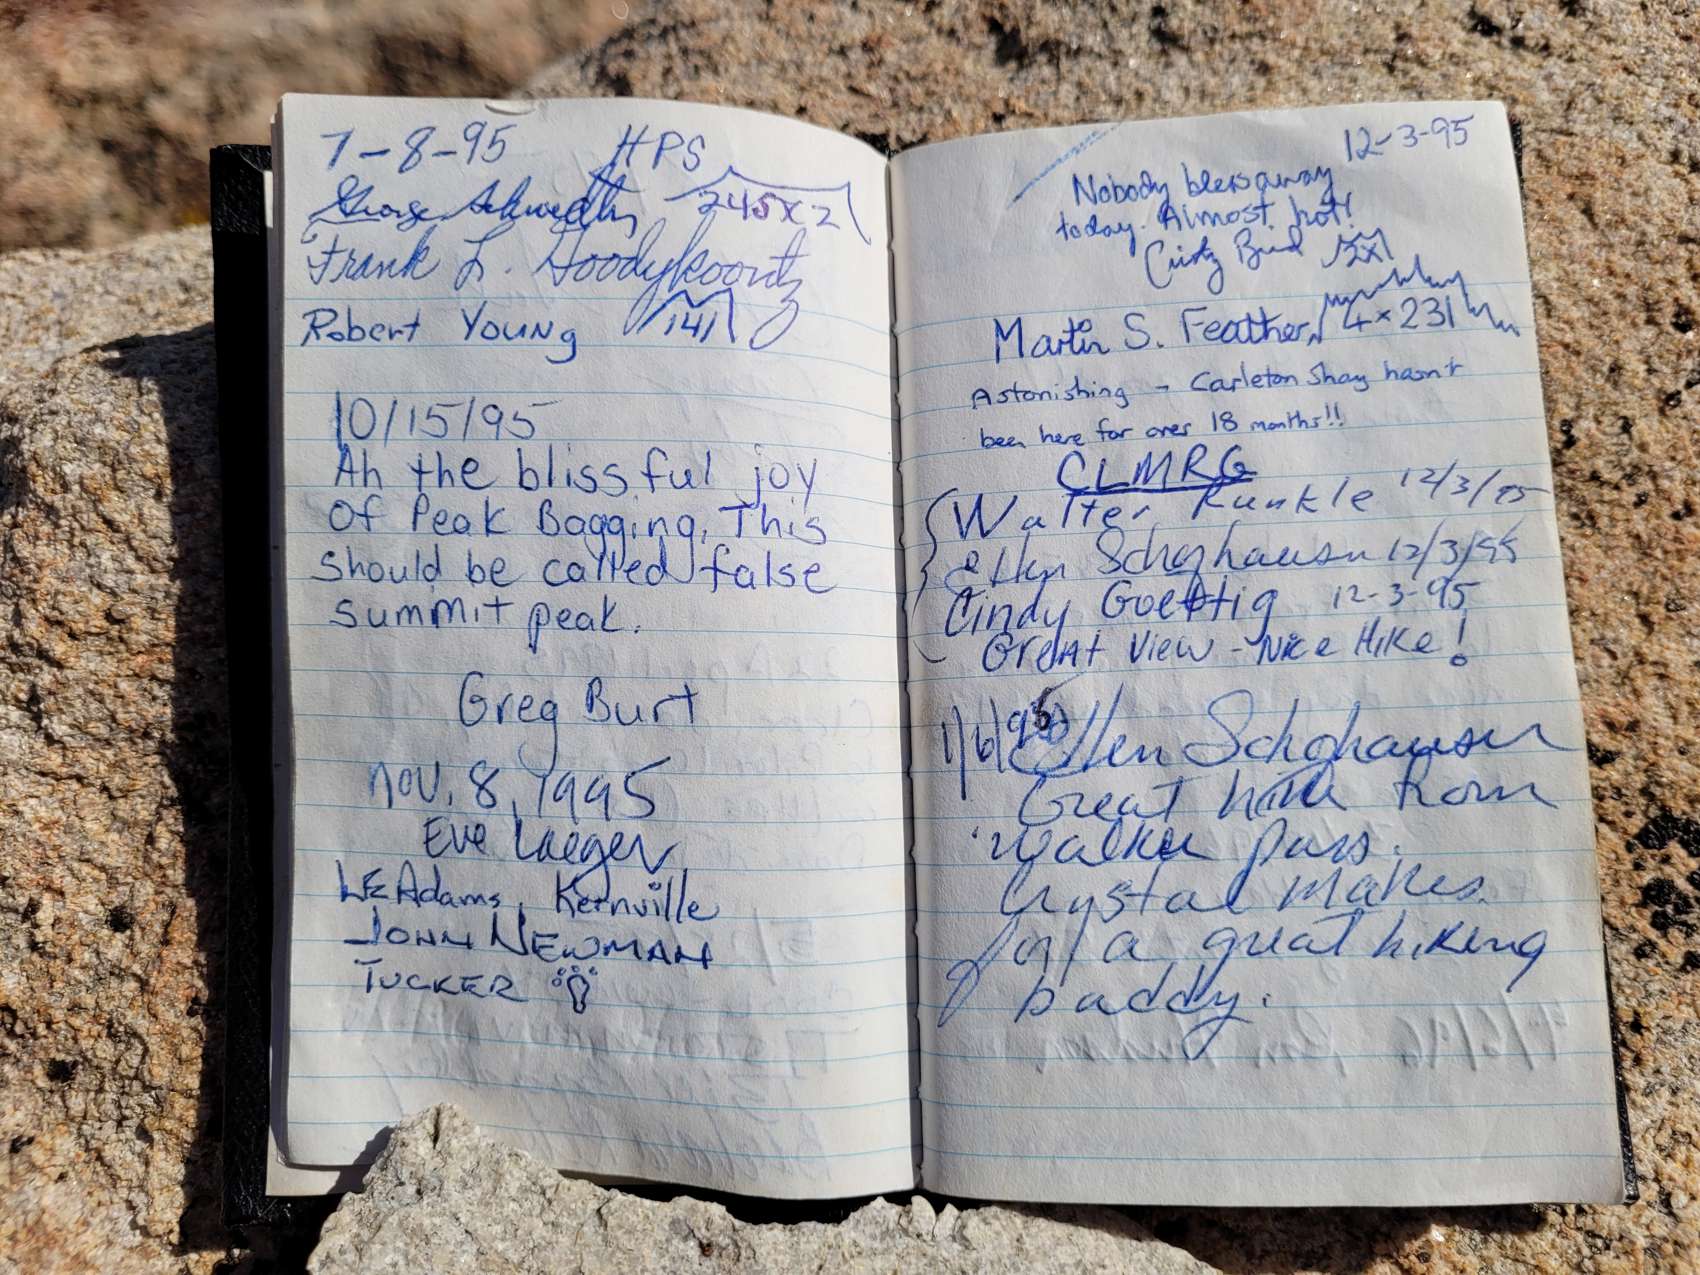 7-8-95 HPS
George 245x2
Frank L. Hoodykoontz
Robert Young 141
10/15/95
Ah the blissful joy
Of Peak Bagging. This
should be called false
summit peak.
Greg Burt
Nov. 8, 1995
Eve Laeger
LE Adams, Kernville
John Newman
Tucker
12-3-95
Nobody blows away
today. Almost hot!
2x
Martin S. Feather 4x231
Astonishing - Carleton Shay hasn't
been here for over 18 months!!
CLMRG
Walter Runkle 12/3/95
Ellen Schafhausen 12/3/95
Cindy Goettig 12-3-95
Great View - Nice Hike!
1/6/ Ellen Schafhausen
Great hike from
Walker pass.
Crystal makes
for a great hiking
buddy.